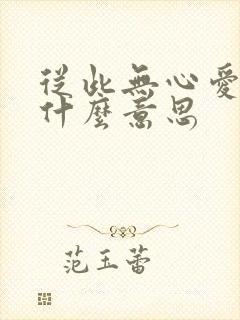 從此無心愛
什麼意思
范玉蕾